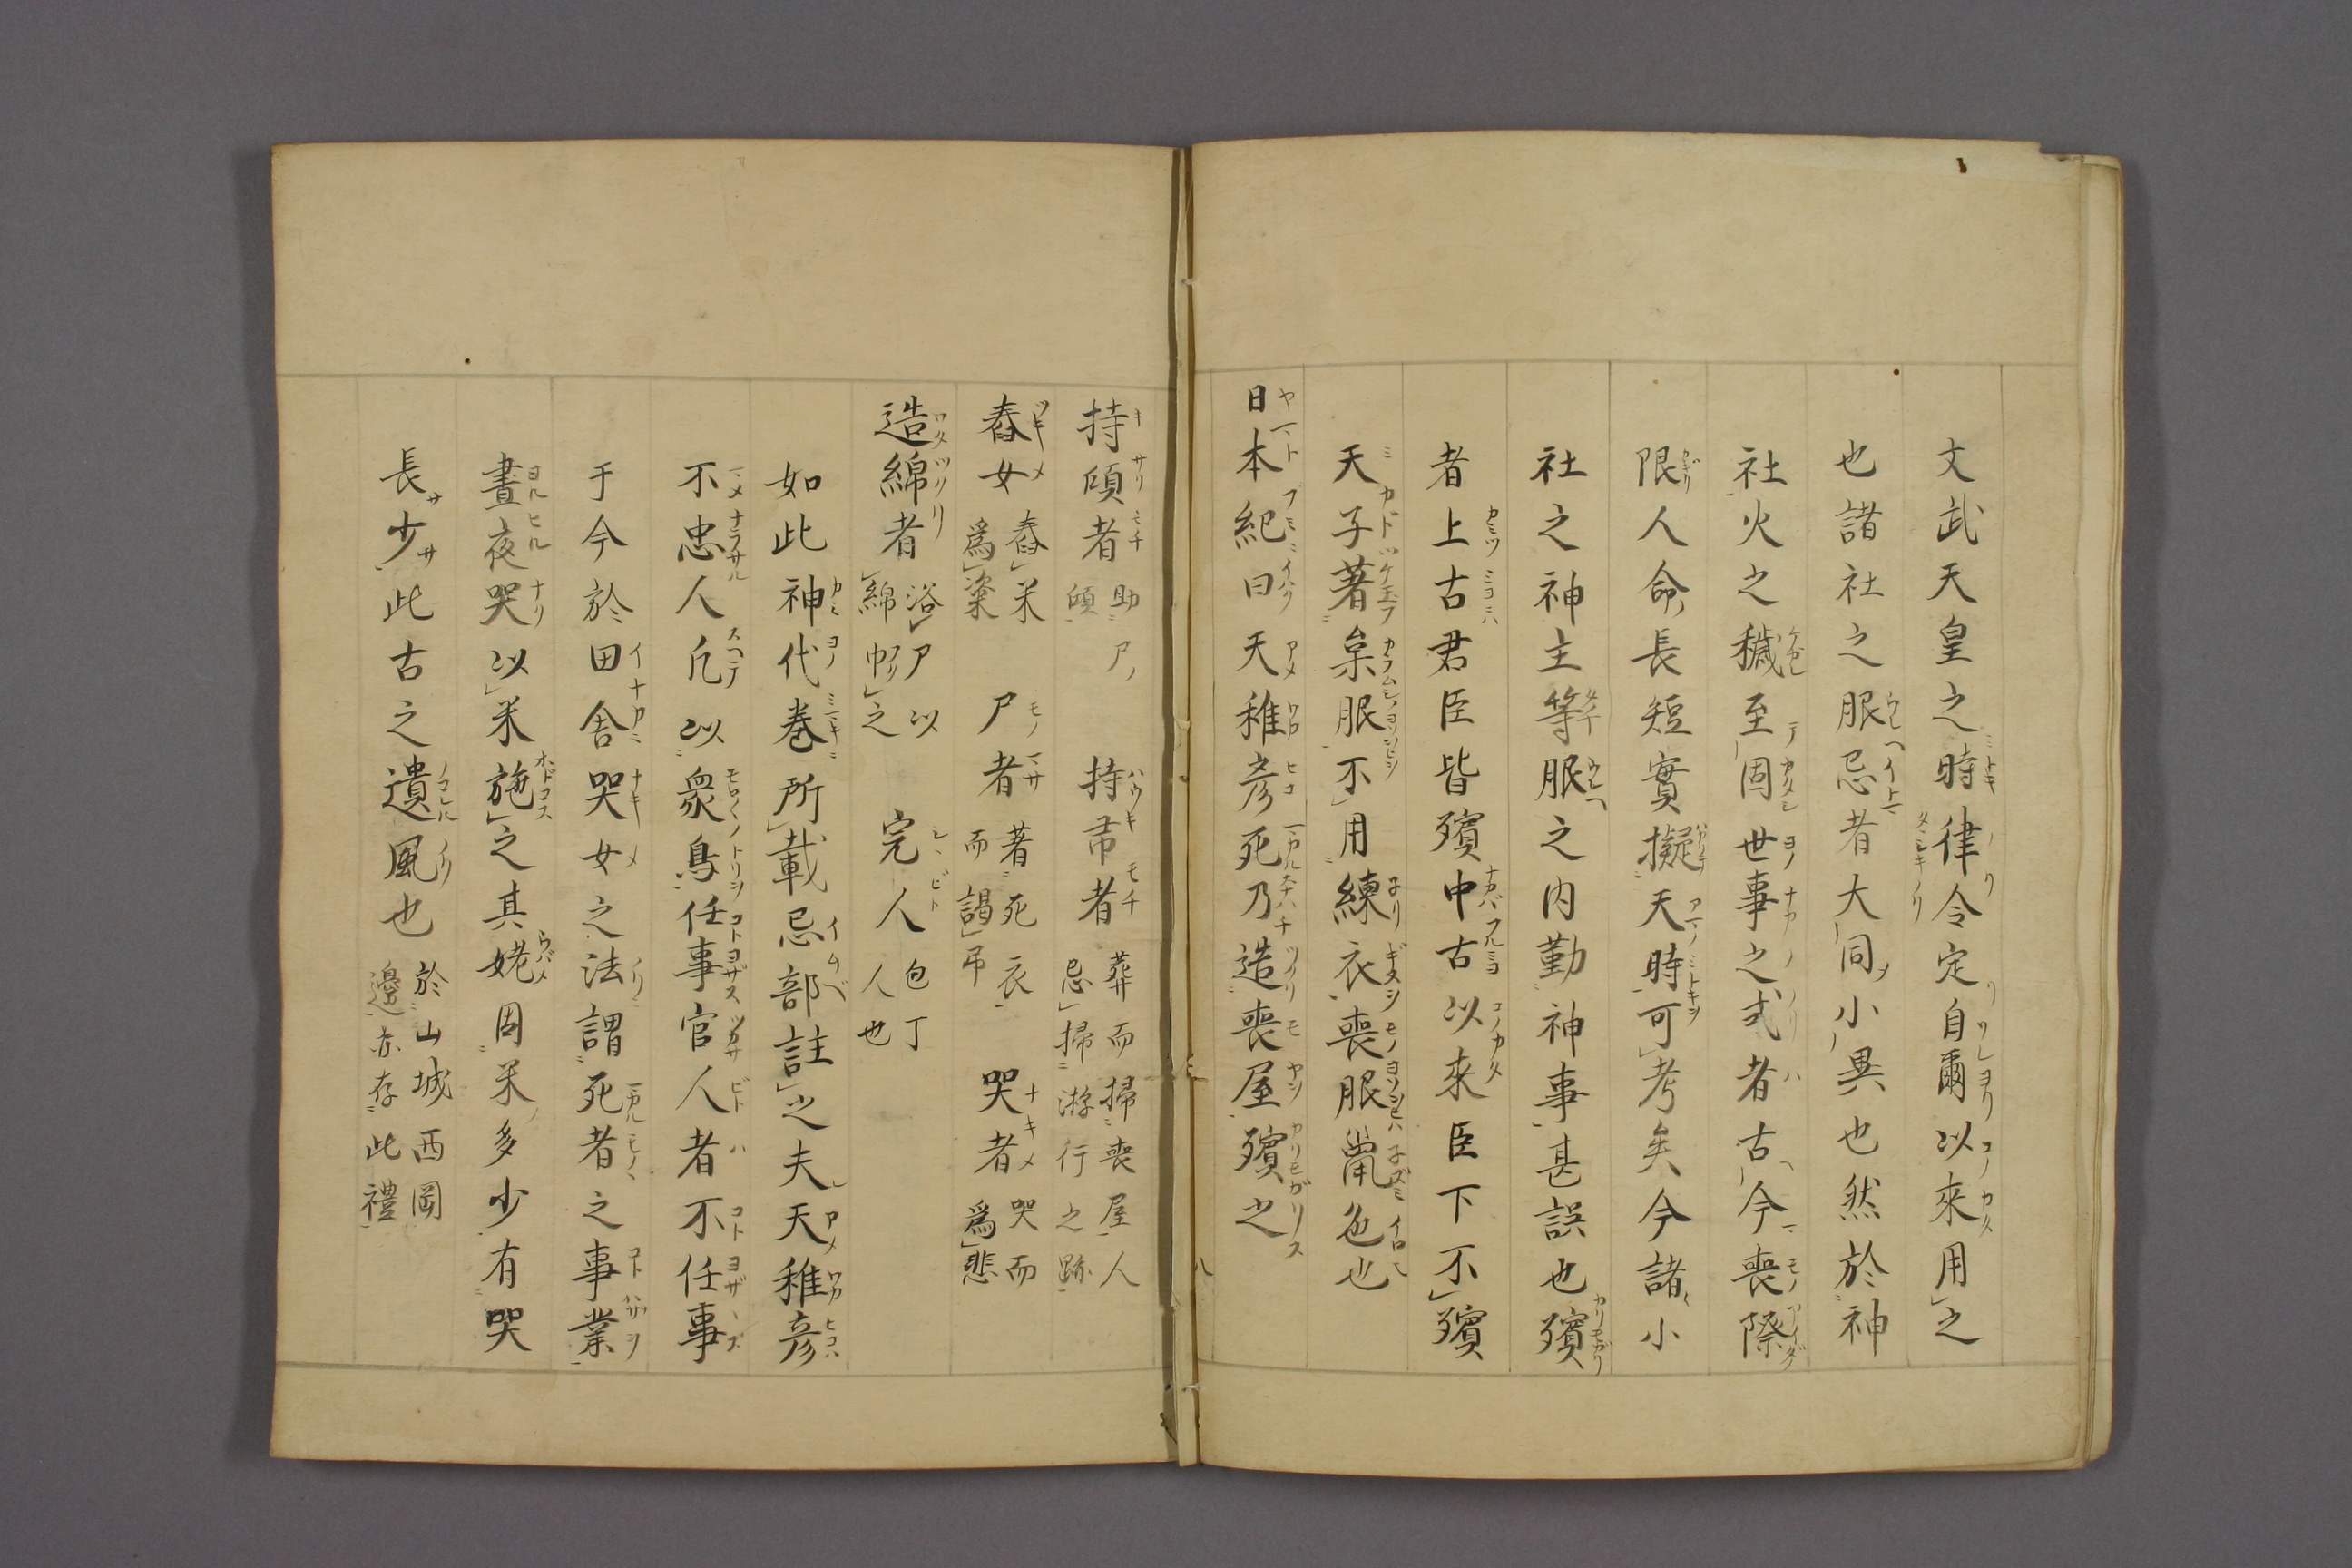 文武天皇之時律令定自爾以來用之
也諸社之服忌者大同小異也然於神
社火之穢至固世事之式者古今喪際
限人命長短實擬天時可考矣今諸小
社之神主等服之内勤神事甚誤也殯
者上古君臣皆殯中古以來臣下不殯
天子著枲服不用練衣喪服鼠色也
日本紀曰天稚彦死乃造喪屋殯之
持傾者 助尸傾 持帚者 葬而掃喪屋人忌掃游行之跡
舂女 舂米爲粢 尸者 著死衣而謁弔 哭者 哭而爲悲
造綿者 浴尸以綿巾之 完人 包丁人也
如此神代卷所載忌部註之夫天稚彦
不忠人凡以衆鳥任事官人者不任事
于今於田舍哭女之法謂死者之事業
晝夜哭以米施之其姥因米多少有哭
長少此古之遺風也 於山城西岡邊亦存此禮